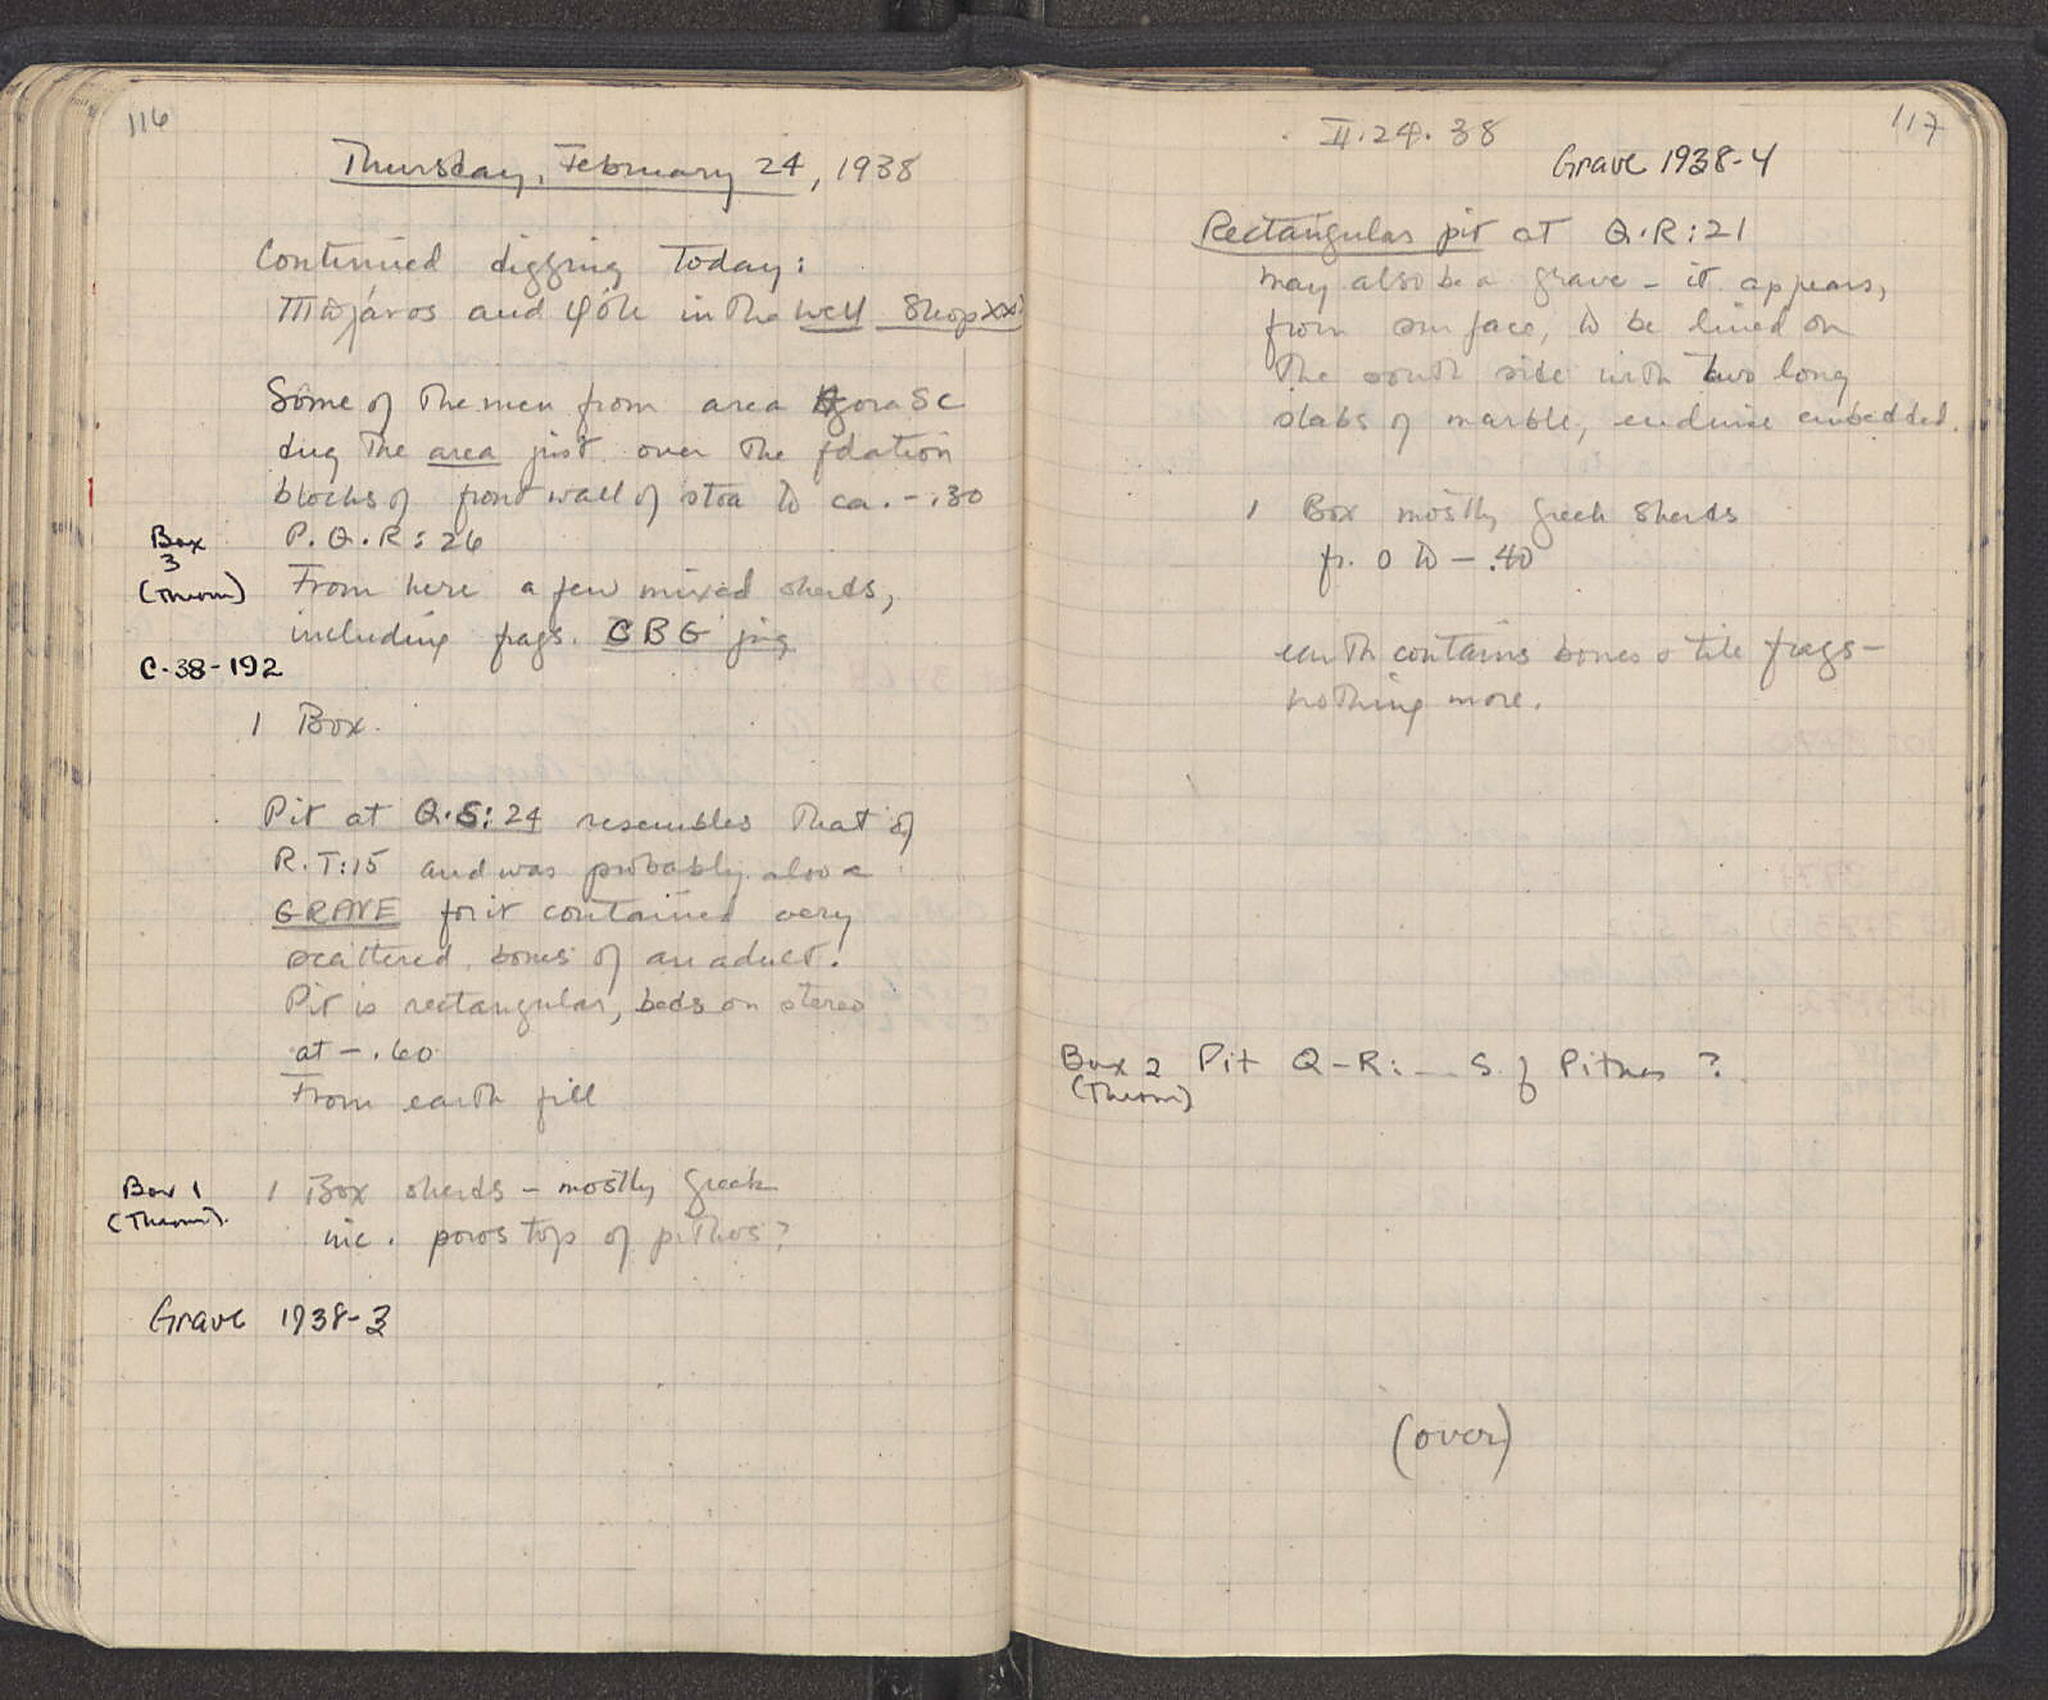 116
Thursday, February 24, 1938
Continued digging today:
and in the well Shop XX
Some of the men from area Agora SC
dug the area just over the fdation
blocks of front wall of stoa to ca. -.30
P.Q.R:26
Box
3
(Therm)
From here a few mixed sherds,
including frags. CBG jug
C-38-192
1 Box.
Pit at Q.S:24 resembles that of
R.T:15 and was probably also a
GRAVE for it contained very
scattered bones of an adult.
Pit is rectangular, beds on stereo
at -.60
From earth fill
Box 1
(Therm).
1 Box sherds - mostly Greek
inc. poros top of pithos?
Grave 1938-3
117
II.24.38
Grave 1938-4
Rectangular pit at Q.R:21
may also be a grave - it appears,
from surface, to be lined on
the south side with two long
slabs of marble, endwise embedded.
1 Box mostly Greek sherds
fr. 0 to -.40
earth contains bones & tile frags-
nothing more.
Box 2 Pit Q-R: -- S. of Pithos ?
(Therm)
(over)